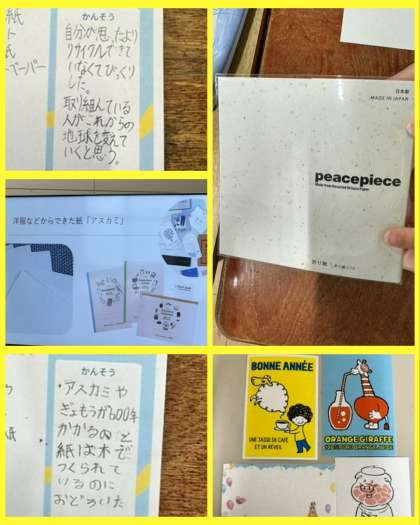 紙
ト
紙
ーペーパー
かんそう
自分が思ったより
リサイクルできて
いなくてびっくり
した。
取り組んでいる
人がこれからの
地球を変えて
いくと思う。
日本製
MADE IN JAPAN
peacepiece
折り紙
洋服などからできた紙「アスカミ」
紙
かんそう
・アスカミや
ぎょもうが600年
かかるのと
紙は木で
つくられて
いるのに
おどろいた
BONNE ANNÉE
UNE TASSE DE CAFÉ
ET UN RÉVEIL
ORANGE GIRAFFE